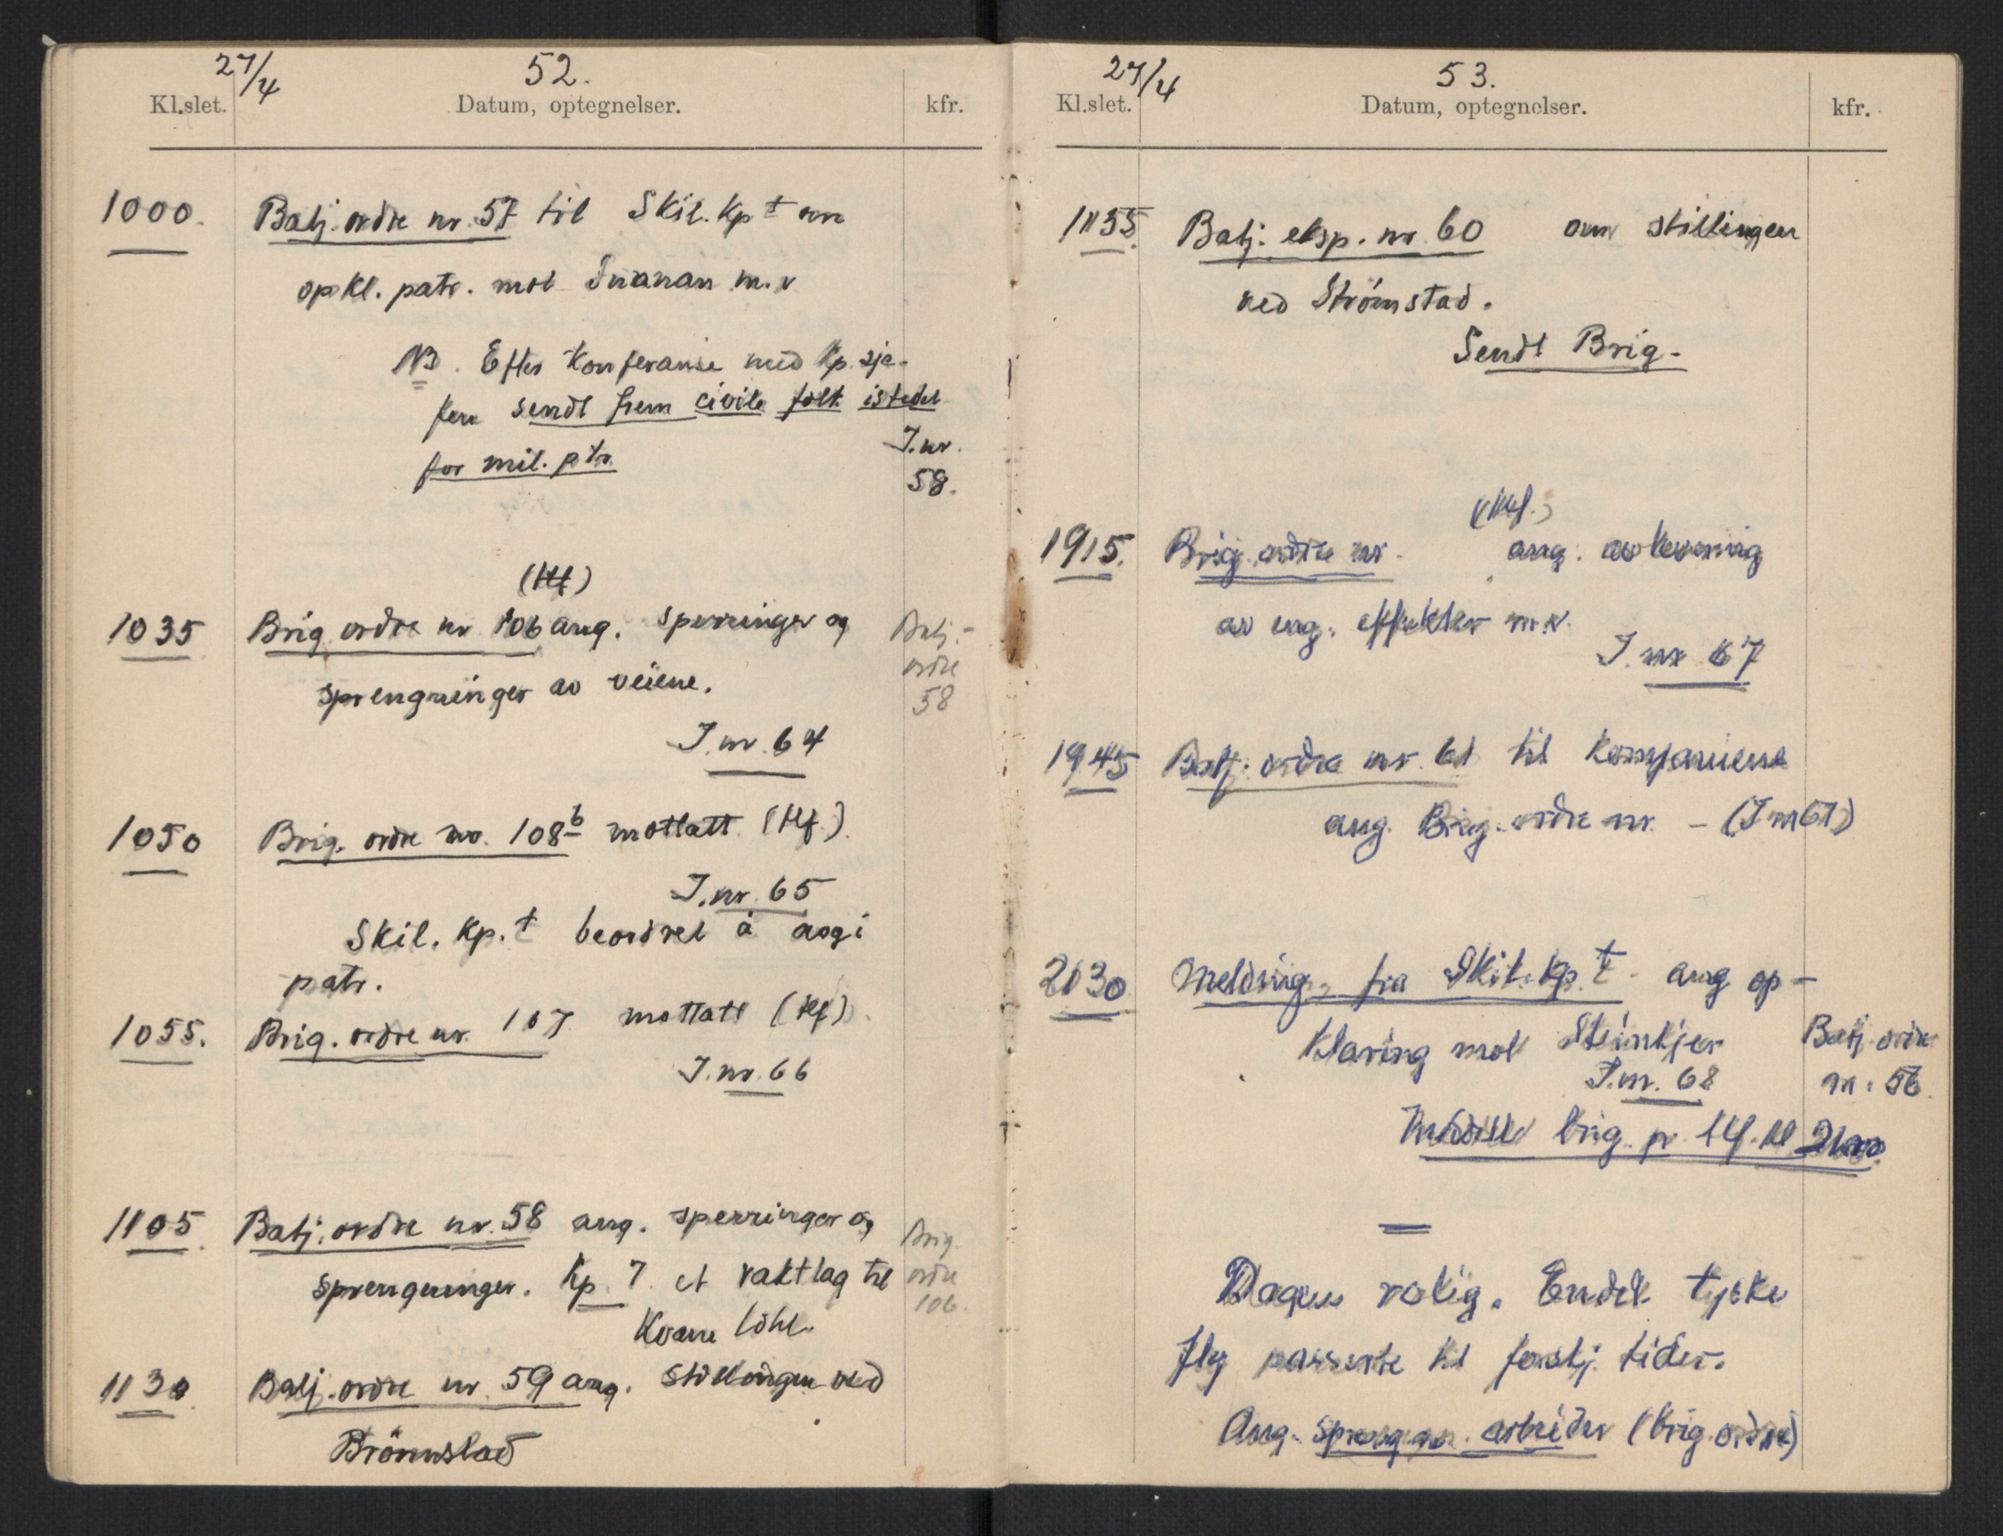 27/4 52.
Kl.slet. Datum, optegnelser. kfr.
1000. Batj. ordre nr. 57 til Skil. Kp t om
opkl. patr. mot Snåsan m.v
NB. Efter Konferanse med Kp. sje-
fen sendt frem civile folk istedet
for mil. ptr.
J.nr.
58.
(tlf)
1035 Brig. ordre nr 106 ang. sperringer og
sprengninger av veiene.
Batj.-
ordre
58
J.nr. 64
1050 Brig. ordre nr. 108 b mottatt (tlf.).
J.nr. 65
Skil. Kp. t beordret å avgi
patr.
1055. Brig. ordre nr. 107 mottatt (tlf).
J.nr. 66
1105 Batj. ordre nr. 58 ang. sperringer og
sprengninger. Kp. 7 et vaktlag til
Kvam
Brig.
ordre
106.
1130 Batj. ordre nr. 59 ang. Stillingen ved
Brömstad
27/4 53.
Kl.slet. Datum, optegnelser. kfr.
1155. Batj. eksp. nr. 60 om stillingen
ved Strömstad.
Sendt Brig.
(tlf.)
1915. Brig. ordre nr. ang. avlevering
av eng. effekter m.v.
J. nr 67
1945 Batj. ordre nr. 61 til Kompaniene
ang. Brig. ordre nr. - (J nr 61)
2030 Melding fra Skil. Kp. t. ang op-
klaring mot Steinkjer
J.nr. 68
Batj. ordre
nr. 56.
Meddelt brig. pr. tlf. kl 2100.
Dagen rolig. Endel tyske
fly passerte til forskj. tider.
Ang. sprengn. arbeider (brig. ordre)